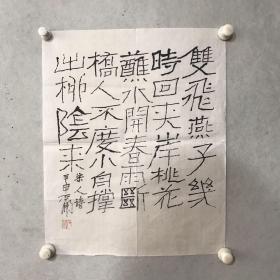 雙飛燕子幾
時回夾岸桃花
蘸水開春雨斷
橋人不度小舟撐
出柳陰來
宋人詩